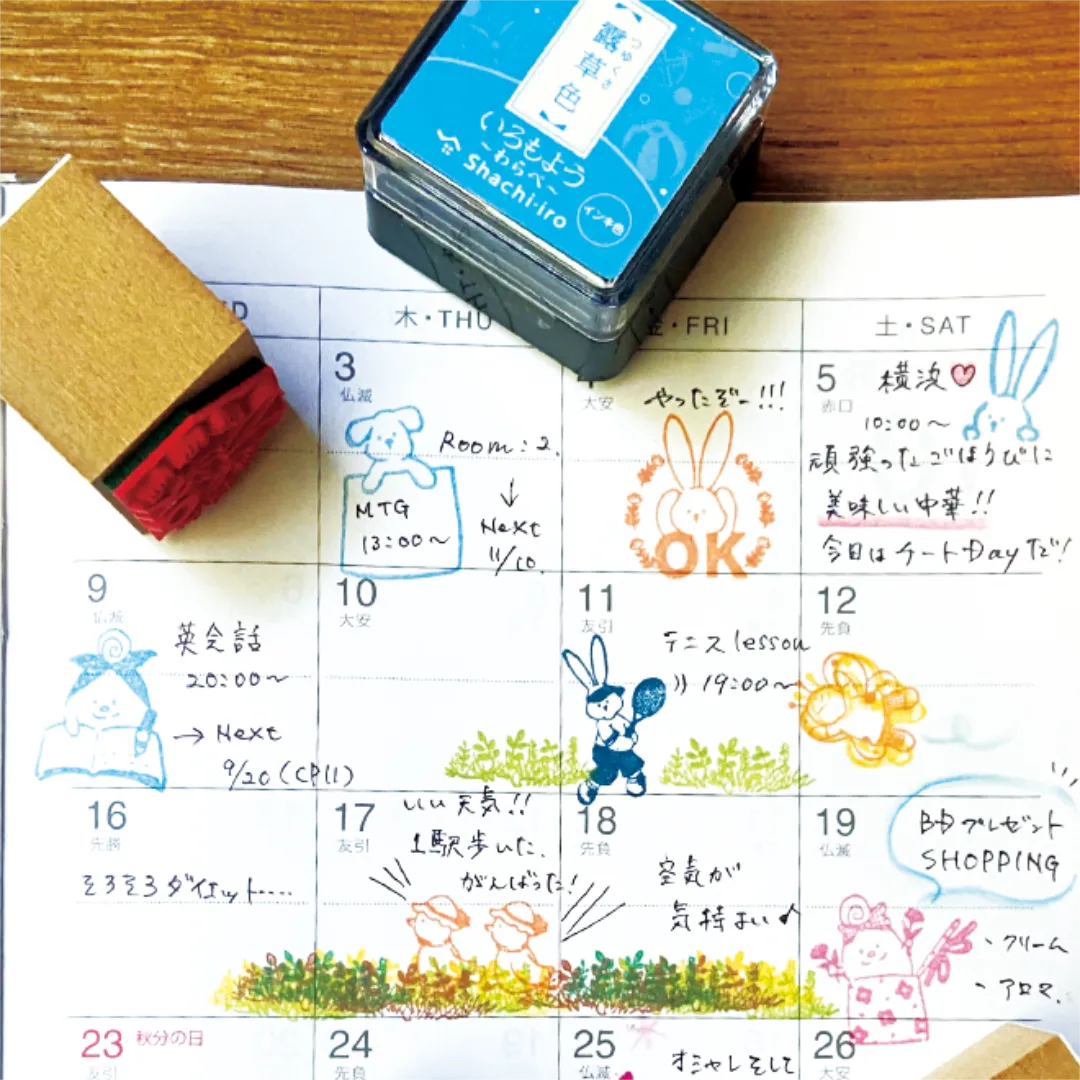 【露草色】
つゆくさ
いろもよう
～わらべ～
Shachi-iro
インキ色
木・THU
・FRI
土・SAT
3
仏滅
Room:2.
MTG
13:00～
↓
Next
11/10.
大安
やったぞー!!!
OK
5
赤口
横浜♡
10:00～
頑張ったごほうびに
美味しい中華!!
今日はチートDayだ!
9
仏滅
英会話
20:00～
→Next
9/20(CP11)
10
大安
11
友引
テニスlesson
19:00～
12
先負
16
先勝
そろそろダイエット....
17
友引
いい天気!!
1駅歩いた.
がんばった!
18
先負
空気が
気持よい♪
19
仏滅
BDプレゼント
SHOPPING
、クリーム
、アロマ.
23
秋分の日
友引
24
先負
25
仏滅
オシャレそして
26
大安